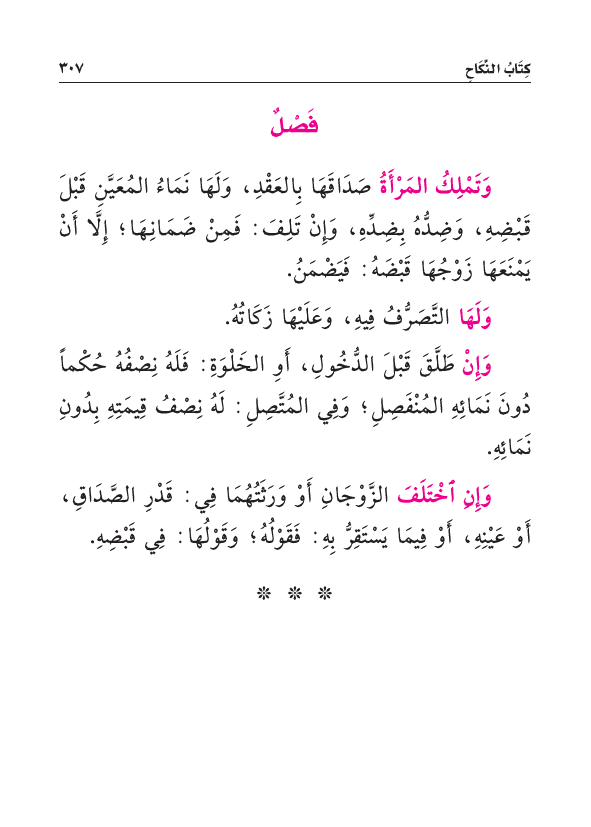 كِتَابُ النِّكَاحِ
٣٠٧
فَصْلٌ
وَتَمْلِكُ المَرْأَةُ صَدَاقَهَا بِالعَقْدِ، وَلَهَا نَمَاءُ المُعَيَّنِ قَبْلَ
قَبْضِهِ، وَضِدُّهُ بِضِدِّهِ، وَإِنْ تَلِفَ: فَمِنْ ضَمَانِهَا؛ إِلَّا أَنْ
يَمْنَعَهَا زَوْجُهَا قَبْضَهُ: فَيَضْمَنُ.
وَلَهَا التَّصَرُّفُ فِيهِ، وَعَلَيْهَا زَكَاتُهُ.
وَإِنْ طَلَّقَ قَبْلَ الدُّخُولِ، أَوِ الخَلْوَةِ: فَلَهُ نِصْفُهُ حُكْماً
دُونَ نَمَائِهِ المُنْفَصِلِ؛ وَفِي المُتَّصِلِ: لَهُ نِصْفُ قِيمَتِهِ بِدُونِ
نَمَائِهِ.
وَإِنِ ٱخْتَلَفَ الزَّوْجَانِ أَوْ وَرَثَتُهُمَا فِي: قَدْرِ الصَّدَاقِ،
أَوْ عَيْنِهِ، أَوْ فِيمَا يَسْتَقِرُّ بِهِ: فَقَوْلُهُ؛ وَقَوْلُهَا: فِي قَبْضِهِ.
❊ ❊ ❊